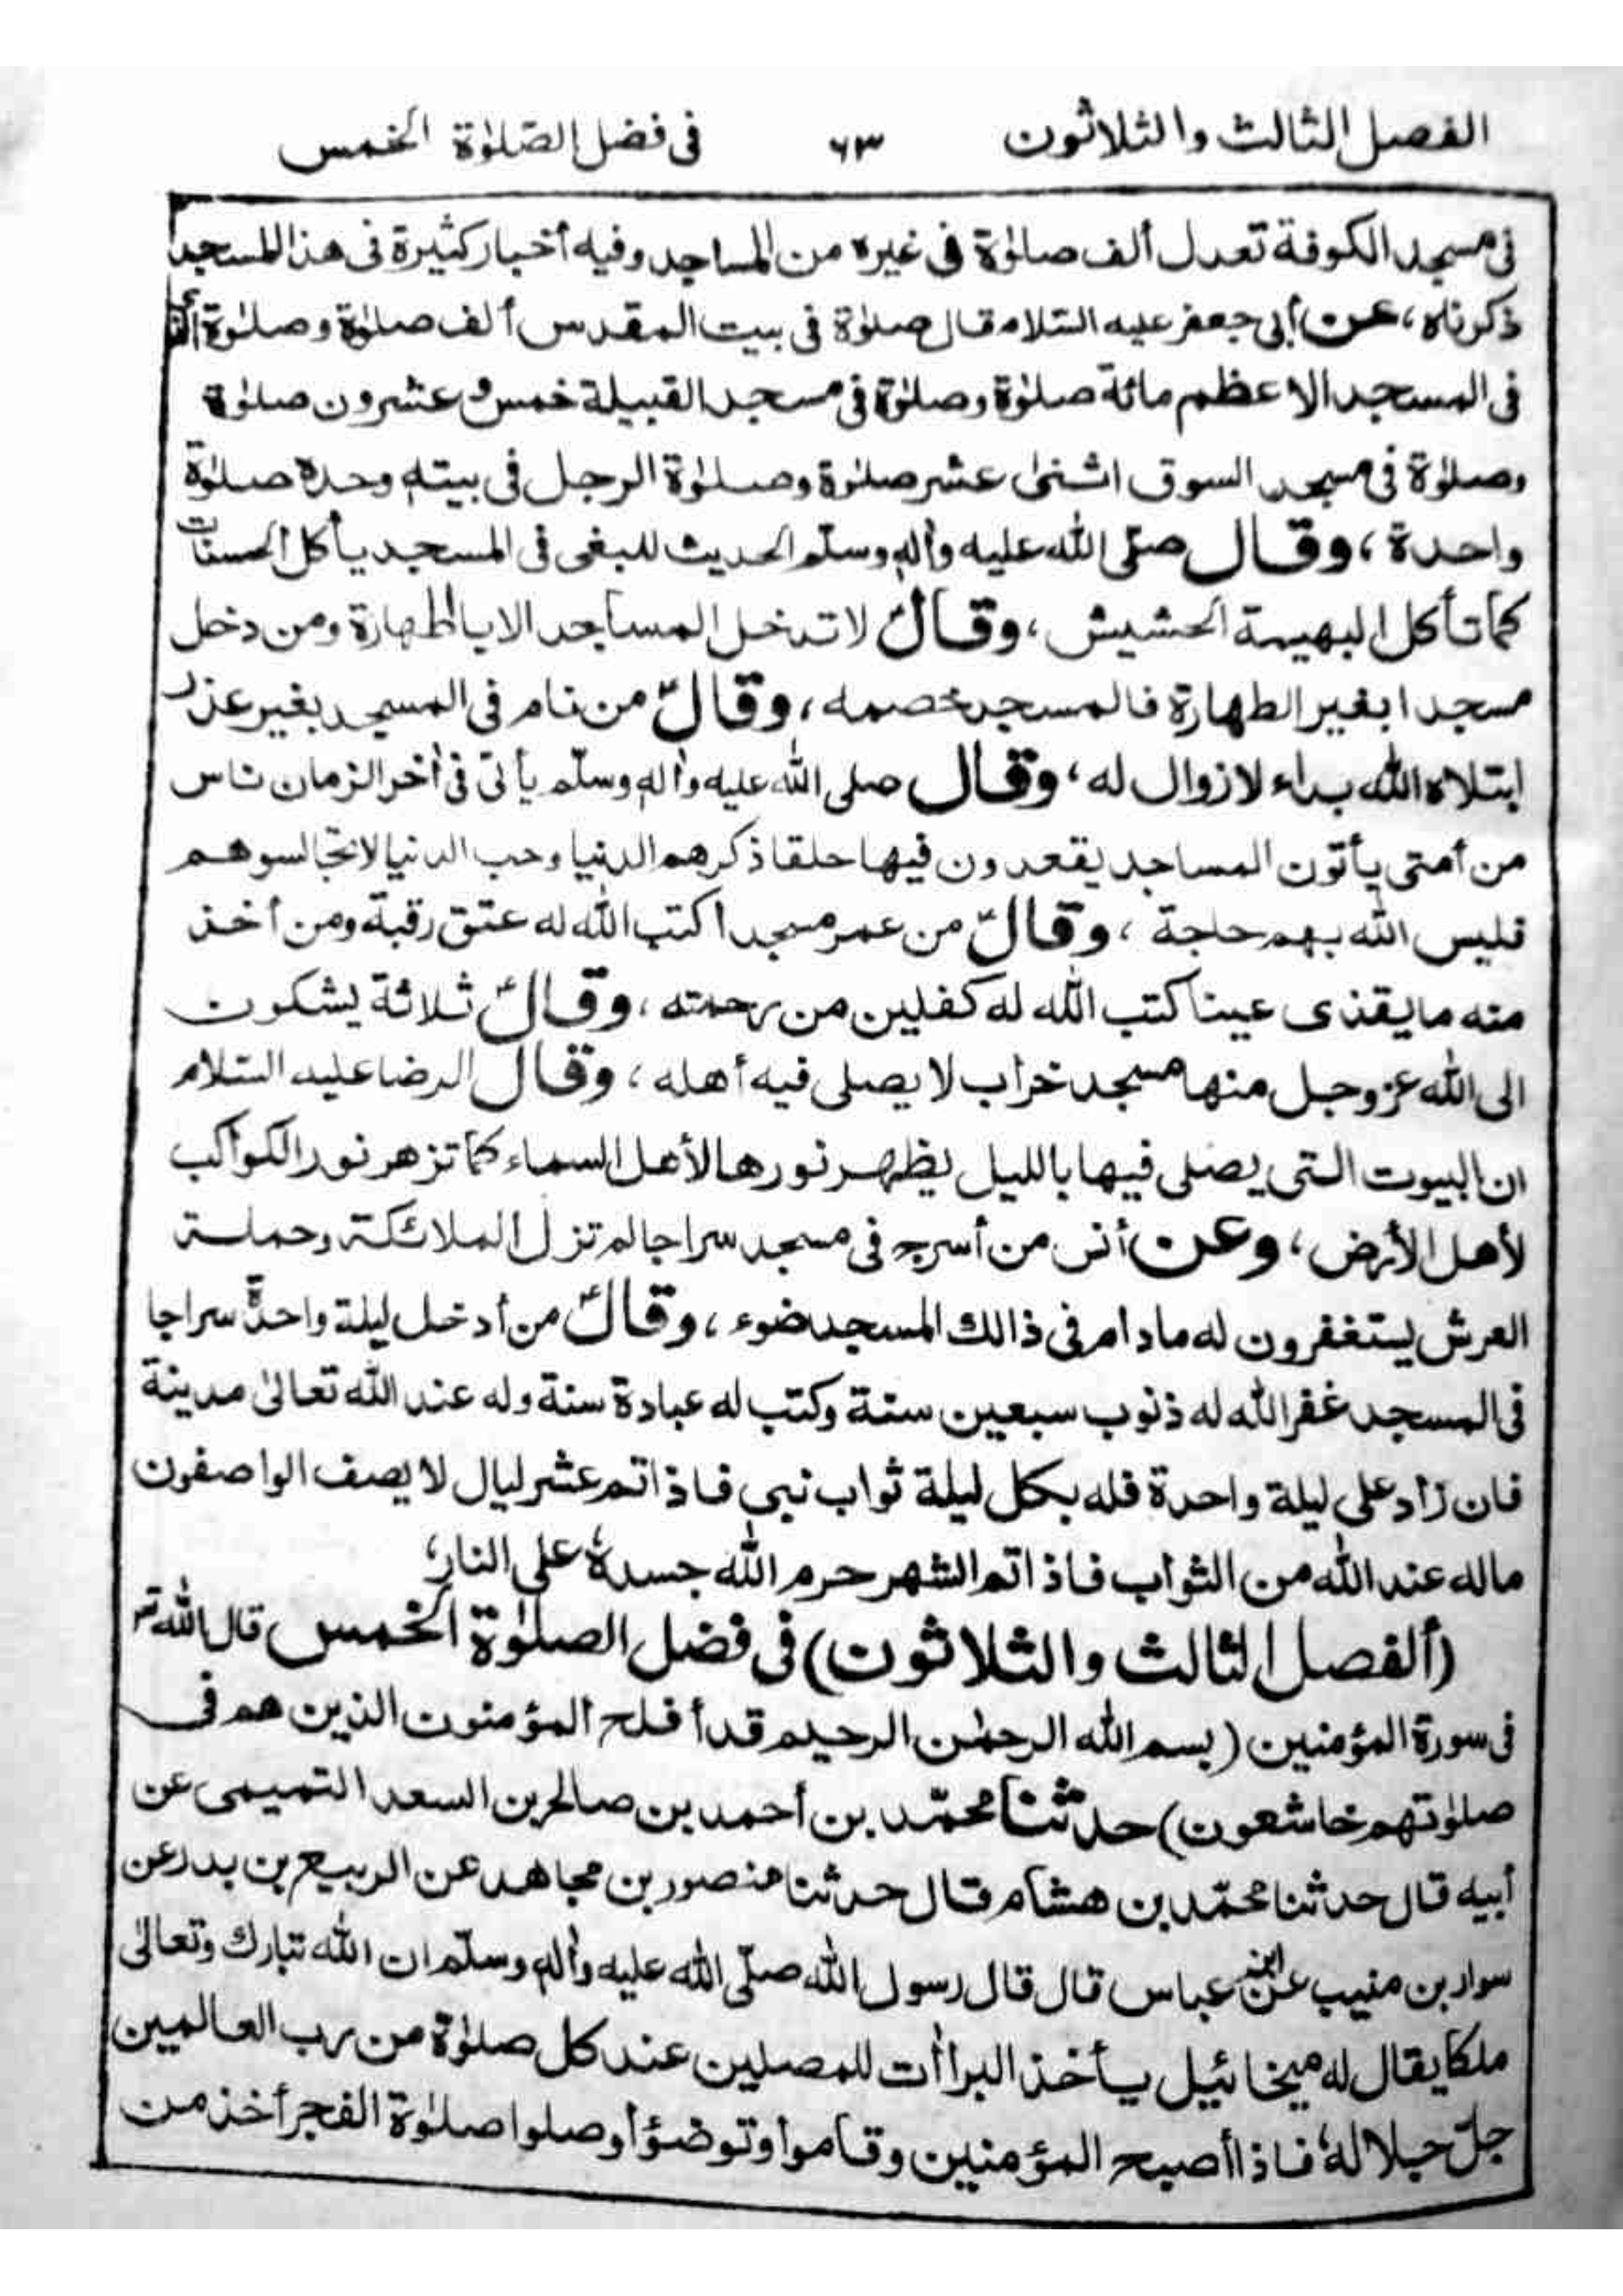 الفصل الثالث والثلاثون ٦٣ فى فضل الصّلوٰة الخمس
فى مسجد الكوفة تعدل ألف صلوٰة فى غيره من المساجد وفيه أخبار كثيرة فى هذا المسجد
ذكرناه، عن أبى جعفر عليه السّلام قال صلوٰة فى بيت المقدس ألف صلوٰة وصلوٰة
فى المسجد الاعظم مائة صلوٰة وصلوٰة فى مسجد القبيلة خمس و عشرون صلوٰة
وصلوٰة فى مسجد السوق اثنىٰ عشر صلوٰة وصلوٰة الرجل فى بيته وحده صلوٰة
واحدة، وقال صلّى الله عليه وأله وسلّم الحديث للبغى فى المسجد يأكل الحسنات
كما تأكل البهيمة الحشيش، وقالؐ لا تدخل المساجد الا بالطهارة ومن دخل
مسجدا بغير الطهارة فالمسجد خصمه، وقالؐ من نام فى المسجد بغير عذر
ابتلاه الله بداء لا زوال له، وقال صلى الله عليه وأله وسلّم يأتى فى أخر الزمان ناس
من أمتى يأتون المساجد يقعدون فيها حلقا ذكرهم الدنيا وحب الدنيا لا تجالسوهم
فليس الله بهم حاجة، وقالؐ من عمر مسجدا كتب الله له عتق رقبة ومن أخذ
منه ما يقذى عينا كتب الله له كفلين من رحمته، وقالؐ ثلاثة يشكون
الى الله عز وجل منها مسجد خراب لا يصلى فيه أهله، وقال الرضا عليه السّلام
ان البيوت التى يصلى فيها بالليل يظهر نورها لأهل السماء كما تزهر نور الكواكب
لأهل الأرض، وعن أنس من أسرج فى مسجد سراجا لم تزل الملائكة وحملة
العرش يستغفرون له مادام فى ذالك المسجد ضوء، وقالؐ من أدخل ليلة واحدة سراجا
فى المسجد غفر الله له ذنوب سبعين سنة وكتب له عبادة سنة وله عند الله تعالىٰ مدينة
فان زاد على ليلة واحدة فله بكل ليلة ثواب نبى فاذا تم عشر ليال لا يصف الواصفون
ماله عند الله من الثواب فاذا تم الشهر حرم الله جسده على النار،
(ألفصل الثالث والثلاثون) فى فضل الصلوٰة الخمس قال الله تعٰ
فى سورة المؤمنين (بسم الله الرحمٰن الرحيم قد أفلح المؤمنون الذين هم فى
صلوٰتهم خاشعون) حدثنا محمّد بن أحمد بن صالح بن السعد التميمى عن
أبيه قال حدثنا محمّد بن هشام قال حدثنا منصور بن مجاهد عن الربيع بن بدر عن
سوار بن منيب عن ابن عباس قال قال رسول الله صلّى الله عليه وأله وسلّم ان الله تبارك وتعالىٰ
ملكا يقال له ميخائيل يأخذ البراأت للمصلين عند كل صلوٰة من رب العالمين
جلّ جلاله، فاذا أصبح المؤمنين وقاموا وتوضؤا وصلوا صلوٰة الفجر أخذ من